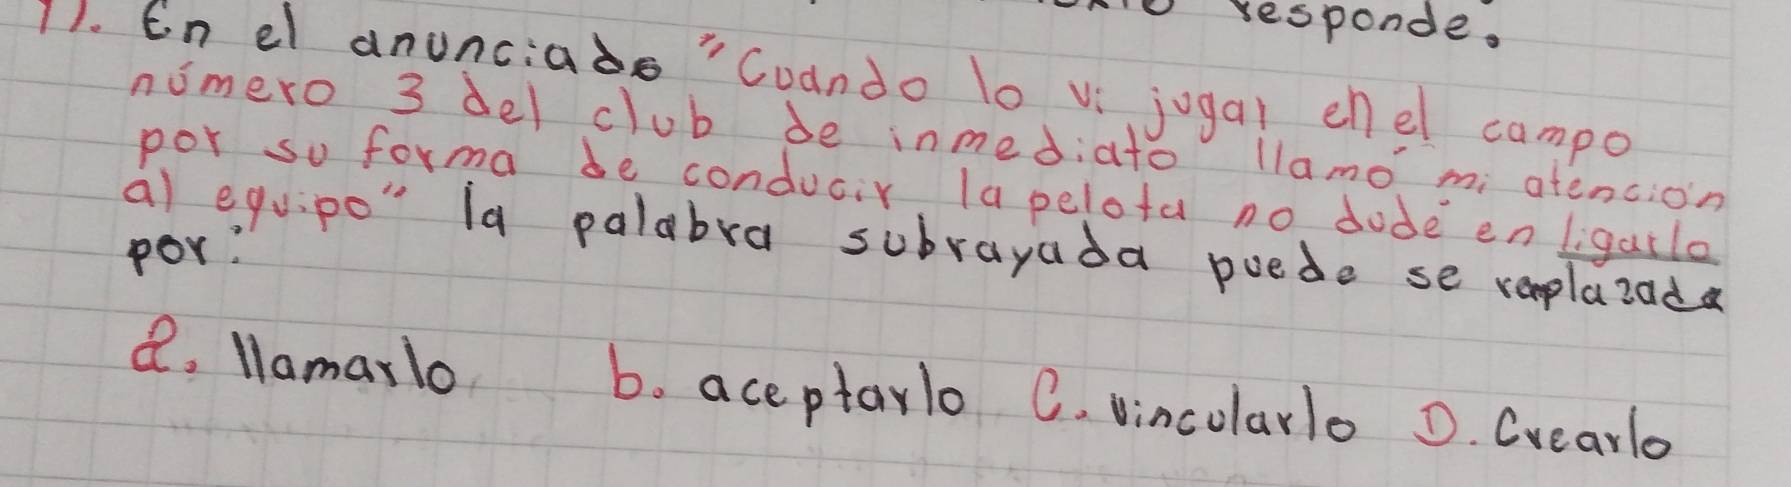 responde.
11. En el anunciado "Cuando lo vi jugar en el campo
número 3 del club de inmediato llamó mi atención
por su forma de conducir la pelota no dudé en ligarlo
al equipo" la palabra subrayada puede se remplazada
por:
a. llamarlo b. aceptarlo C. vincularlo D. Crearlo